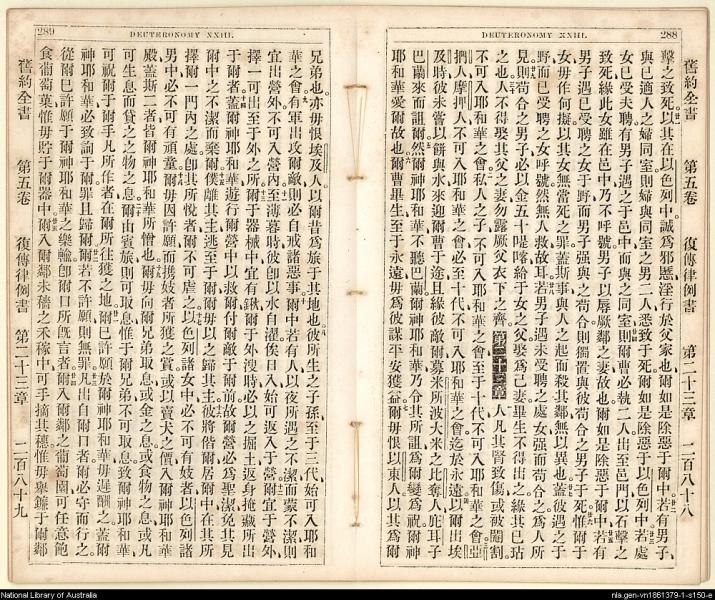 DEUTERONOMY XXIII.
288
舊約全書
第五卷
復傳律例書
第二十三章
二百八十八
擊之致死以其在以色列中誠為邪慝淫行於父家也爾如是除惡于爾中若有男子
與已適人之婦同室則婦與同室之男二人悉致于死爾如是除惡于以色列中若處
女已受夫聘有男子遇之于邑中而與之同室則爾曹必執二人出至邑門以石擊之
致死緣此女雖在邑中乃不呼號男子以辱厥鄰之妻故也爾如是除惡于爾中若有
男子遇已受聘之女于野而男子强與之苟合則獨置與彼苟合之男子于死惟爾于
女毋作何擬以其女無當死之罪蓋斯事與人之起而殺其鄰無以異也蓋彼遇之于
野而已受聘之女呼號然無人救故耳若男子遇未受聘之處女强而苟合之為人所
見則苟合之男子必以金五十
之也人不得娶其父之妻勿露厥父衣下之齊
第二十三章
人凡其腎致傷或被閹割
不可入耶和華之會私人之子不可入耶和華之會至于十代不可入耶和華之會亞
捫人摩押人不可入耶和華之會必至十代不可入耶和華之會迄於永遠以爾出埃
及時彼未嘗以餅與水來迎爾曹于途且緣彼敵爾募米所波大米之比奪人庇耳子
巴蘭來而詛爾然爾神耶和華不聽巴蘭爾神耶和華乃令其所詛為爾變為祝爾神
耶和華愛爾故也爾曹畢生至于永遠毋為彼謀平安獲益爾毋恨以東人以其為爾
289
DEUTERONOMY XXIII.
兄弟也亦毋恨埃及人以爾昔為旅于其地也彼所生之子孫至于三代始可入耶和
華之會有軍出攻爾敵則必自戒諸惡事爾中若有人以夜所遇之不潔而蒙不潔則
宜出營外不可入營內至薄暮時彼卽以水自濯俟日入始可返入于營爾宜于營外
擇一可出至于外之所爾于器械中宜有鍬爾于外溲時必以之掘土返身掩藏所出
于爾者蓋爾神耶和華遊行爾營中以救爾付爾敵于爾前故爾營必為聖潔免其見
爾中之不潔而棄爾僕離其主逃至于爾爾毋以之歸其主彼將偕爾居爾中在其所
擇爾一門內之處卽其所悅者爾不可虐之以色列諸女中必不可有妓者以色列諸
男中必不可有頑童爾毋因許願而攜妓者所獲之賞或以賣犬之價入爾神耶和華
殿蓋斯二者皆爾神耶和華所憎也爾毋向爾兄弟取息或金之息或食物之息或凡
可生息而貸之之物之息爾由賓旅則可取息惟于爾兄弟不可取息致爾神耶和華
可祝爾于爾手凡所作者在爾所往獲之地爾已許願於爾神耶和華毋遲酬之蓋爾
神耶和華必致詢于爾罪且歸爾爾若不許願則無罪凡出自爾口者爾必守而行之
從爾已許願于爾神耶和華之樂輸卽爾口所旣言者爾入爾鄰之葡萄園可任意飽
食葡萄菓惟毋貯于爾器中爾入爾鄰未穡之禾稼中可手摘其穗惟毋舉鐮于爾鄰
舊約全書
第五卷
復傳律例書
第二十三章
二百八十九
National Library of Australia
nla.gen-vn1861379-1-s150-e